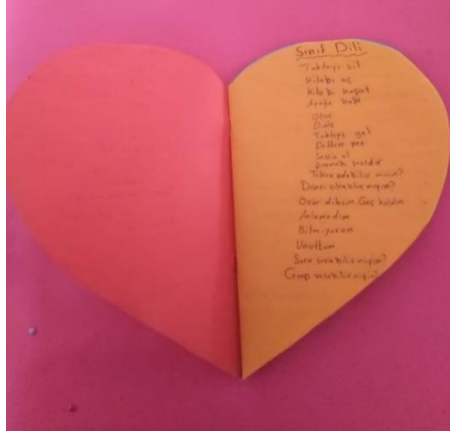 Sınıf Dili
Tahtayı sil
Kitabı aç
Kitabı kapat
Ayağa kalk
Otur
Dinle
Tahtaya gel
Deftere yaz
Sessiz ol
Parmak kaldır
Tekrar edebilir misin?
Dışarı çıkabilir miyim?
Özür dilerim Geç kaldım
Anlamadım
Bilmiyorum
Unuttum
Soru sorabilir miyim?
Cevap verebilir miyim?